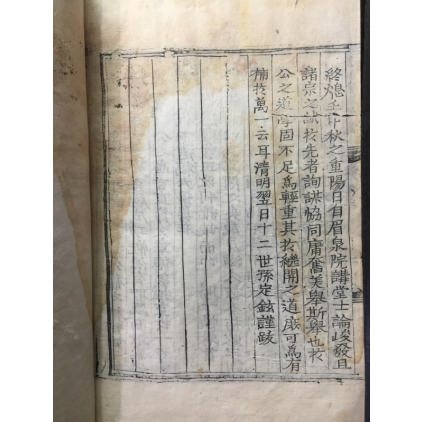 終熄壬午秋之重陽日自眉泉院講堂士論峻發且
諸宗之於先者詢謀恊同庸奮羙舉斯舉也於
公之道學固不足爲輕重其於繼開之道庶可爲有
補於萬一云耳清明翌日十二世孫定鉉謹跋